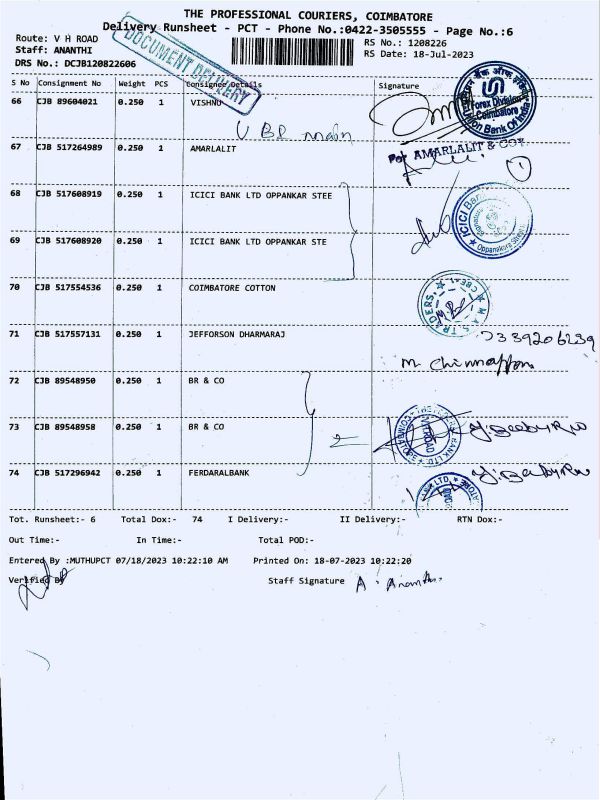 THE PROFESSIONAL COURIERS, COIMBATORE
Delivery Runsheet - PCT - Phone No.:0422-3505555 - Page No.:6
Route: V H ROAD
Staff: ANANTHI
DRS No.: DCJB120822606
RS No.: 1208226
RS Date: 18-Jul-2023
DOCUMENT DELIVERY
S No Consignment No Weight PCS Consignee Details Signature
66 CJB 89604021 0.250 1 VISHNU
Forex Division
Coimbatore
Union Bank Of India
main
67 CJB 517264989 0.250 1 AMARLALIT
For AMARLALIT & COY.
68 CJB 517608919 0.250 1 ICICI BANK LTD OPPANKAR STEE
ICICI Bank
69 CJB 517608920 0.250 1 ICICI BANK LTD OPPANKAR STE
70 CJB 517554536 0.250 1 COIMBATORE COTTON
M.A.S. TRADERS
71 CJB 517557131 0.250 1 JEFFORSON DHARMARAJ
7339206239
M. Chinnappan
72 CJB 89548950 0.250 1 BR & CO
73 CJB 89548958 0.250 1 BR & CO
74 CJB 517296942 0.250 1 FERDARALBANK
Tot. Runsheet:- 6 Total Dox:- 74 I Delivery:- II Delivery:- RTN Dox:-
Out Time:- In Time:- Total POD:-
Entered By :MUTHUPCT 07/18/2023 10:22:10 AM Printed On: 18-07-2023 10:22:20
Verified By Staff Signature A. Ananthi